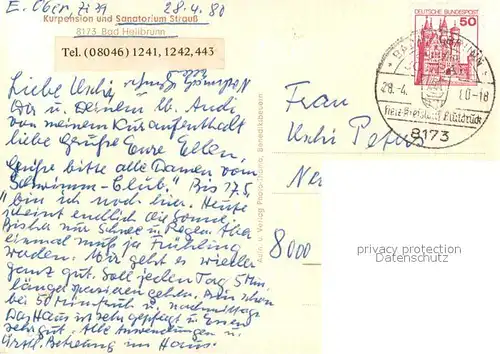 E. Ober, Zi 39
28.4.80
Kurpension und Sanatorium Strauß
8173 Bad Heilbrunn
Tel. (08046) 1241, 1242, 443
Liebe Uschi,
Dir u. Deinem lb. Andi
von meinem Kuraufenthalt
liebe Grüße Eure Ellen,
Grüße bitte alle Damen vom
Schwimm-Club. Bis 17.5.
bin ich noch hier. Heute
scheint endlich die Sonne,
Bisher nur Schnee u. Regen. Aber
einmal muß ja Frühling
werden. Mir geht es wieder
ganz gut. Soll jeden Tag 5 Min.
länger spazieren gehen. Bin schon
bei 50 Min früh u. nachmittags
Das Haus ist sehr gepflegt u. Essen
sehr gut. Alle Anwendungen u.
ärztl. Betreuung im Haus.
Aufn. u. Verlag Photo-Thoma, Benediktbeuern
DEUTSCHE BUNDESPOST
50
BAD HEILBRUNN
28.-4. 80-18
8173
Frau
Uschi Peter
8000
privacy protection